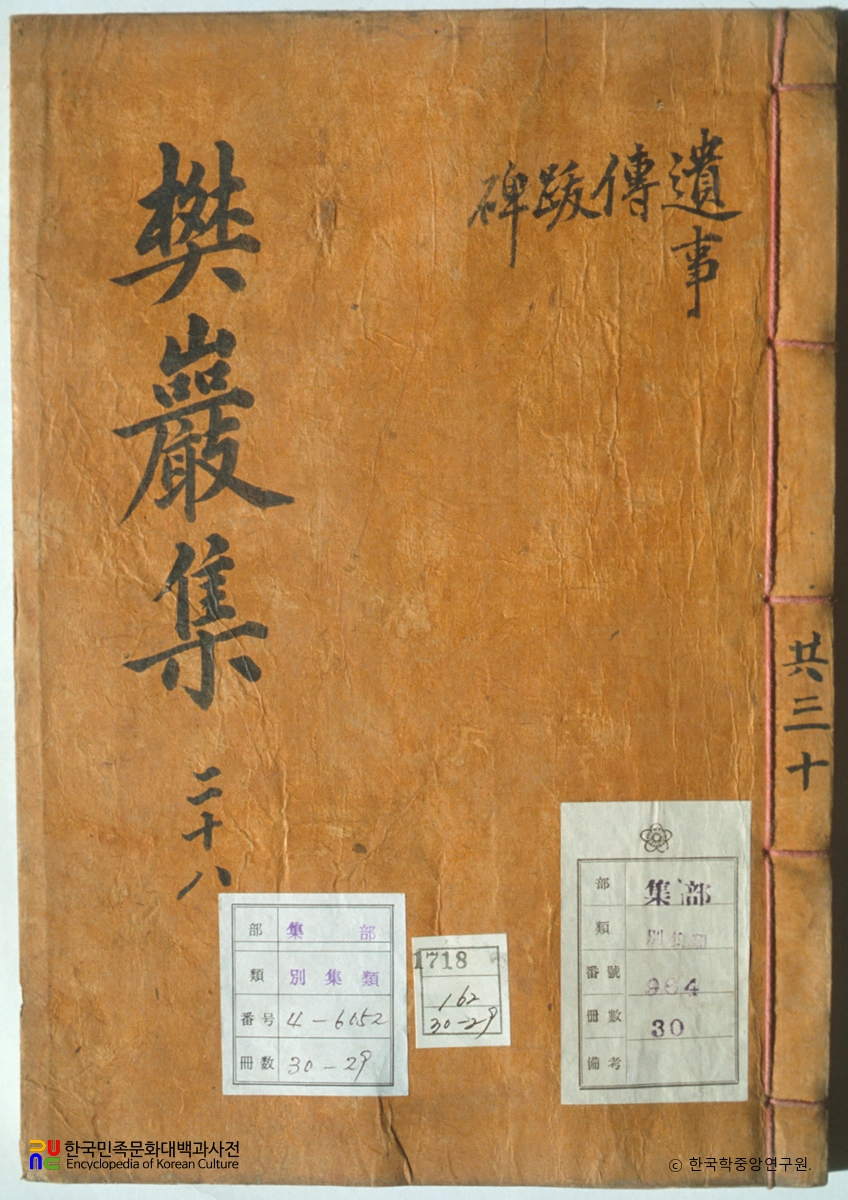 樊巖集 二十八
遺事
傳
跋
碑
共三十
部 集部
類 別集類
番号 4-6052
冊数 30-29
1718
162
30-29
部 集部
類 別集類
番號 964
冊數 30
備考
한국민족문화대백과사전
Encyclopedia of Korean Culture
© 한국학중앙연구원.